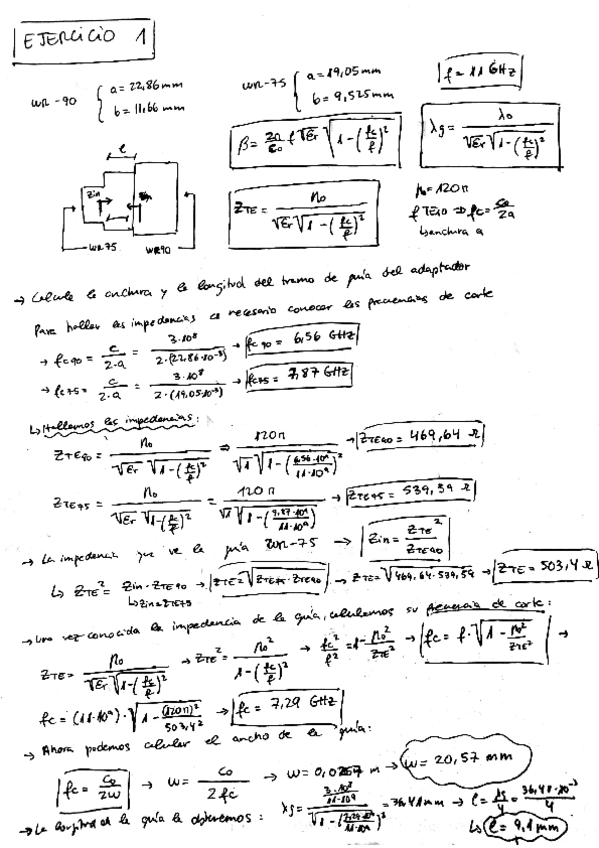 EJERCICIO 1
WR-90 { a = 22,86 mm
b = 11,66 mm
WR-75 { a = 19,05 mm
b = 9,525 mm
f = 11 GHz
β = 2π/c₀ f √εr √(1-(fc/f)²)
λg = λ₀ / (√εr √(1-(fc/f)²))
l
Zin
WR75
WR90
ZTE = η₀ / (√εr √(1-(fc/f)²))
η₀ = 120π
f TE10 ⇒ fc = c₀/2a
↳ anchura a
→ Calcule la anchura y la longitud del tramo de guía del adaptador
Para hallar las impedancias es necesario conocer las frecuencias de corte
→ fc90 = c/(2·a) = 3·10⁸/(2·(22,86·10⁻³)) → fc90 = 6,56 GHz
→ fc75 = c/(2·a) = 3·10⁸/(2·(19,05·10⁻³)) → fc75 = 7,87 GHz
↳ Hallamos las impedancias:
ZTE90 = η₀/(√εr √(1-(fc/f)²)) ⇒ 120π/(√1 √(1-(6,56·10⁹/11·10⁹)²)) → ZTE90 = 469,64 Ω
ZTE75 = η₀/(√εr √(1-(fc/f)²)) = 120π/(√1 √(1-(7,87·10⁹/11·10⁹))) → ZTE75 = 539,59 Ω
→ La impedancia que ve la guía WR-75 → Zin = ZTE²/ZTE90
↳ ZTE² = Zin·ZTE90 → ZTE = √(ZTE75·ZTE90) → ZTE = √(469,64·539,59) → ZTE = 503,4 Ω
↳ Zin = ZTE75
→ Una vez conocida la impedancia de la guía, calculamos su frecuencia de corte:
ZTE = η₀/(√εr √(1-(fc/f)²)) → ZTE² = η₀²/(1-(fc/f)²) → fc²/f² = 1-η₀²/ZTE² → fc = f·√(1-η₀²/ZTE²) →
fc = (11·10⁹)·√(1-(120π)²/503,4²) → fc = 7,29 GHz
→ Ahora podemos calcular el ancho de la guía:
fc = c₀/2w → w = c₀/2fc → w = 0,0257 m → w = 20,57 mm
→ La longitud de la guía la obtenemos: λg = (3·10⁸/11·10⁹)/√(1-(7,29·10⁹/11·10⁹)²) = 36,41 mm → l = λg/4 = 36,41·10⁻³/4
↳ l = 9,1 mm